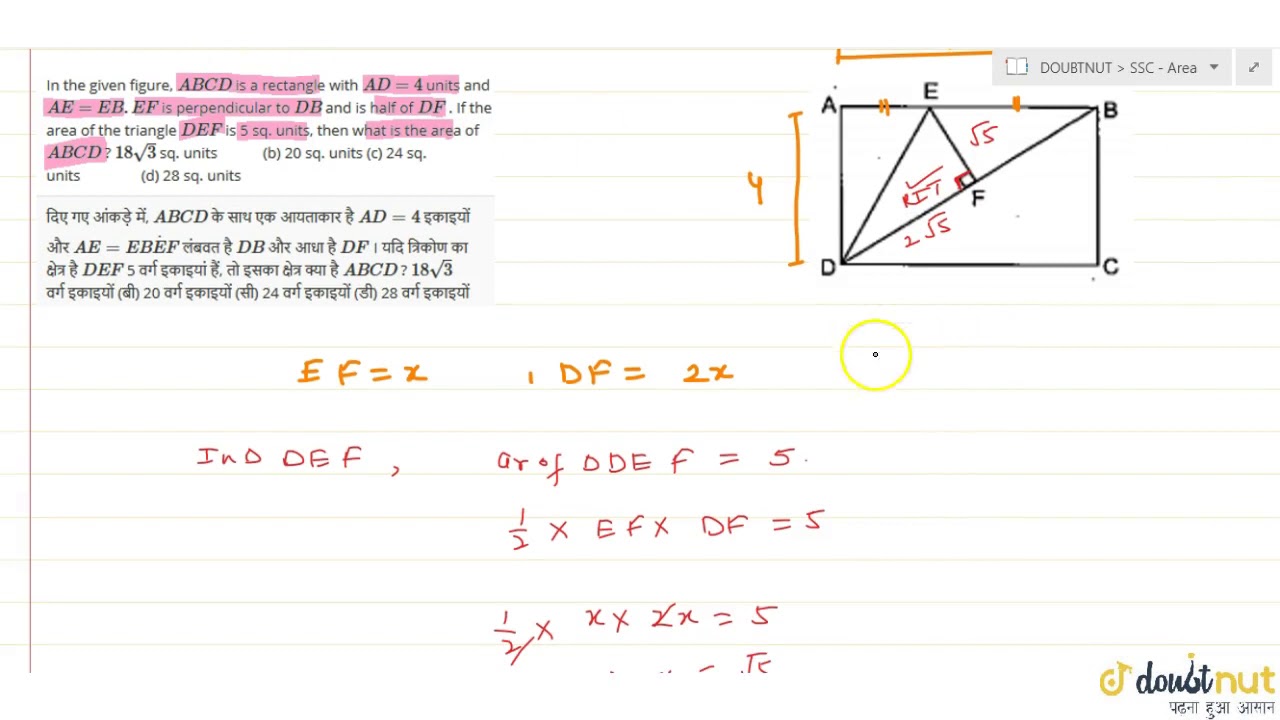 In the given figure, ABCD is a rectangle with AD = 4 units and
AE = EB. EF is perpendicular to DB and is half of DF. If the
area of the triangle DEF is 5 sq. units, then what is the area of
ABCD? 18√3 sq. units (b) 20 sq. units (c) 24 sq.
units (d) 28 sq. units
दिए गए आंकड़े में, ABCD के साथ एक आयताकार है AD = 4 इकाइयों
और AE = EBĖEF लंबवत है DB और आधा है DF । यदि त्रिकोण का
क्षेत्र है DEF 5 वर्ग इकाइयां हैं, तो इसका क्षेत्र क्या है ABCD? 18√3
वर्ग इकाइयों (बी) 20 वर्ग इकाइयों (सी) 24 वर्ग इकाइयों (डी) 28 वर्ग इकाइयों
DOUBTNUT > SSC - Area
A E B
√5
4
RIT
F
2√5
D C
EF = x , DF = 2x
In Δ DEF, ar of Δ DEF = 5.
1/2 × EF × DF = 5
1/2 × x × 2x = 5
x = √5
doubtnut
पढ़ना हुआ आसान